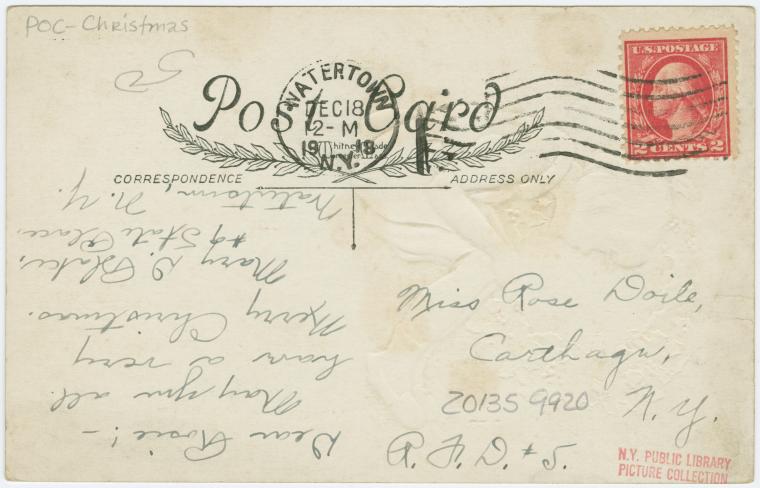 POC-Christmas
Post Card
WATERTOWN
DEC 18
12-M
1918
N.Y.
Whitney Made
U.S. POSTAGE
2 CENTS 2
CORRESPONDENCE
ADDRESS ONLY
Dear Rosie! –
May you all
have a very
Merry Christmas.
Mary D. Blake,
#9 State Place,
Watertown, N.Y.
Miss Rose Doile,
Carthage,
N.Y.
R.F.D. #5.
Z0135 9920
N.Y. PUBLIC LIBRARY
PICTURE COLLECTION